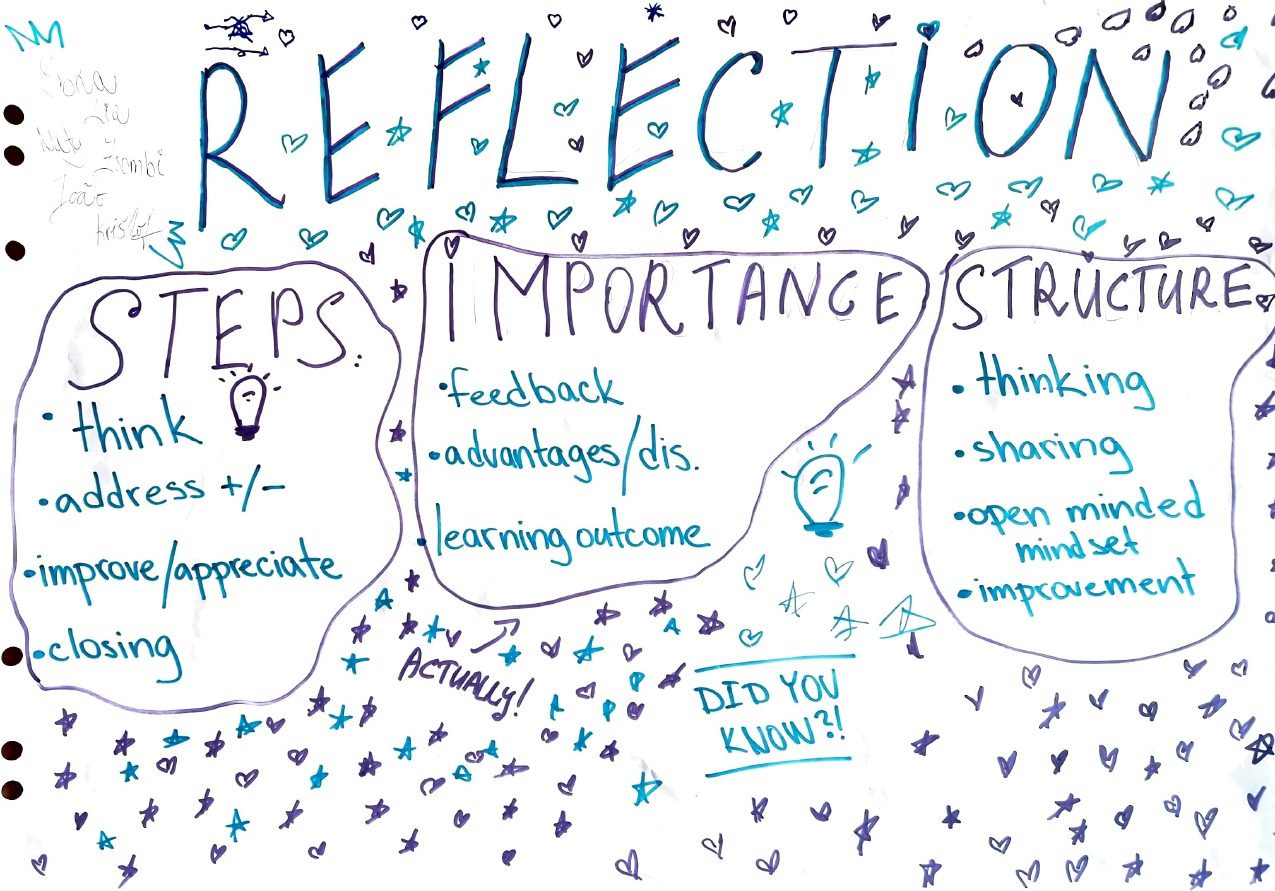 REFLECTION
Lia
Zsombi
João
Kristóf
STEPS:
• think
• address +/-
• improve/appreciate
• closing
IMPORTANCE
• feedback
• advantages/dis.
• learning outcome
ACTUALLY!
DID YOU
KNOW?!
STRUCTURE
• thinking
• sharing
• open minded
mindset
• improvement